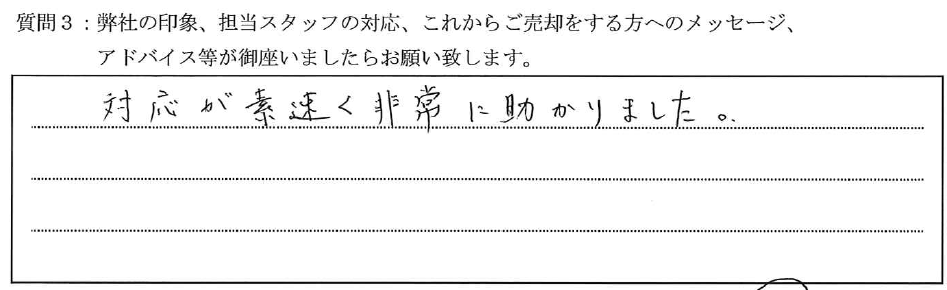 質問３：弊社の印象、担当スタッフの対応、これからご売却をする方へのメッセージ、
アドバイス等が御座いましたらお願い致します。
対応が素速く非常に助かりました。